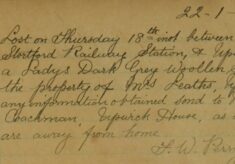 22-1-
Lost on Thursday 18th inst between
Stortford Railway Station, &
a Lady's Dark Grey Woollen
the property of Mrs Leaths,
any information obtained send to
Coachman, House, as
are away from home
F. W. Perr